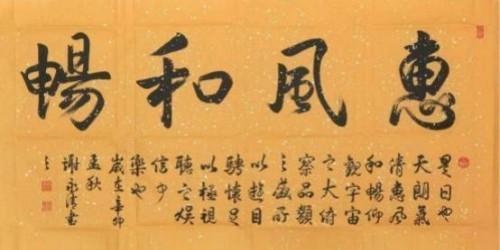 惠風和暢
是日也
天朗氣
清惠風
和暢仰
觀宇宙
之大俯
察品類
之盛所
以遊目
騁懷足
以極視
聽之娛
信可
樂也
歲在辛卯
孟秋
謝永清書